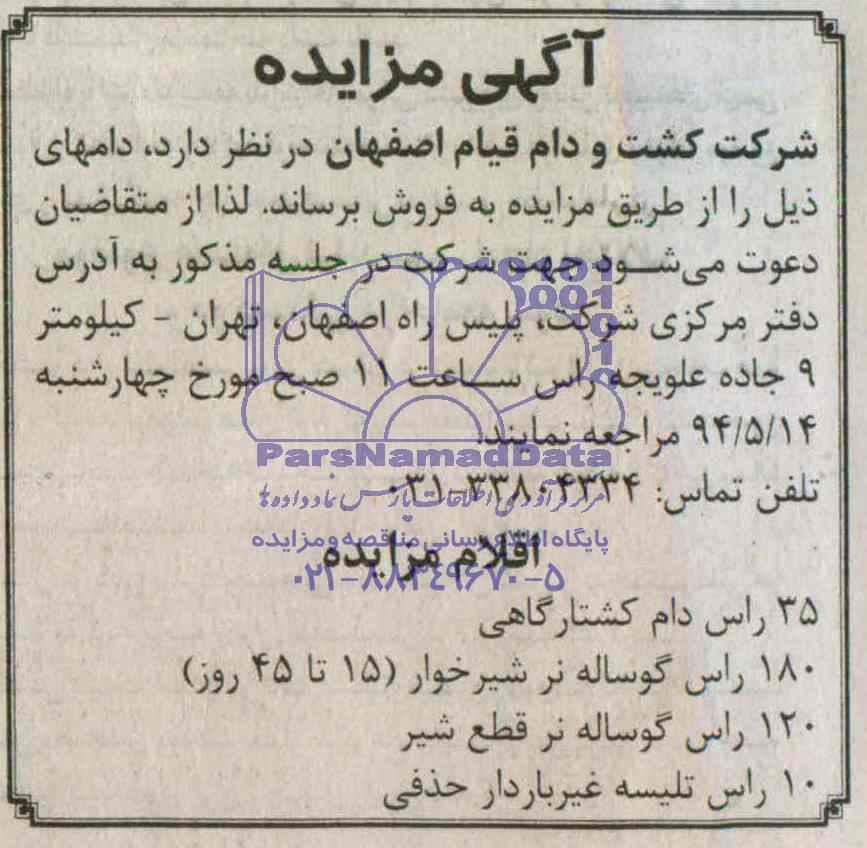 آگهی مزایده
شرکت کشت و دام قیام اصفهان در نظر دارد، دامهای
ذیل را از طریق مزایده به فروش برساند. لذا از متقاضیان
دعوت می‌شود جهت شرکت در جلسه مذکور به آدرس
دفتر مرکزی شرکت، پلیس راه اصفهان، تهران - کیلومتر
۹ جاده علویجه راس ساعت ۱۱ صبح مورخ چهارشنبه
۹۴/۵/۱۴ مراجعه نمایند.
ParsNamadData
تلفن تماس: ۳۳۸۰۴۳۳۴-۰۳۱
مرکز فرآوری اطلاعات پارس نماد داده ها
پایگاه اطلاع رسانی مناقصه و مزایده
اقلام مزایده
۰۲۱-۸۸۳۴۹۶۷۰-۵
۳۵ راس دام کشتارگاهی
۱۸۰ راس گوساله نر شیرخوار (۱۵ تا ۴۵ روز)
۱۲۰ راس گوساله نر قطع شیر
۱۰ راس تلیسه غیرباردار حذفی